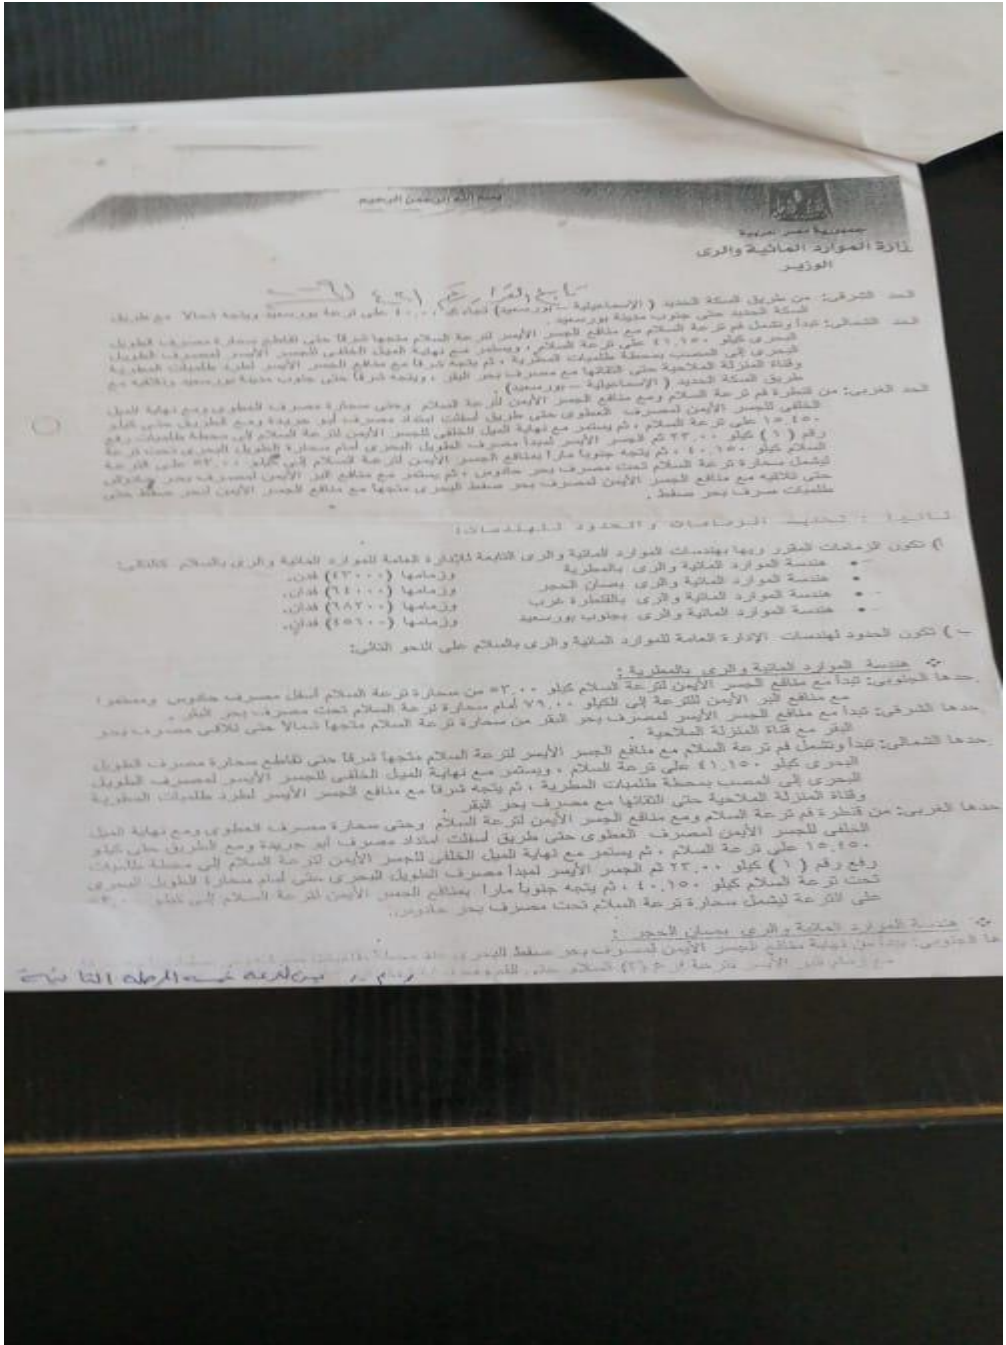 بسم الله الرحمن الرحيم
جمهورية مصر العربية
وزارة الموارد المائية والرى
الوزير
تابع القرار رقم
الحد الشرقى: من طريق السكة الحديد ( الإسماعيلية – بورسعيد) كيلو ٤٠,٠٠ على ترعة بورسعيد ويتجه شمالاً مع طريق
السكة الحديد حتى جنوب مدينة بورسعيد .
الحد الشمالى: تبدأ وتشمل فم ترعة السلام مع منافع الجسر الأيسر لترعة السلام متجهاً شرقاً حتى تقاطع سحارة مصرف الطويل
البحرى كيلو ٤١,١٥٠ على ترعة السلام ، ويستمر مع نهاية الميل الخلفى للجسر الأيسر لمصرف الطويل
البحرى إلى المصب بمحطة طلمبات المطرية ، ثم يتجه شرقاً مع منافع الجسر الأيسر لطرد طلمبات المطرية
وقناة المنزلة الملاحية حتى التقائها مع مصرف بحر البقر ، ويتجه شرقاً حتى جنوب مدينة بورسعيد وتلاقيه مع
طريق السكة الحديد ( الإسماعيلية – بورسعيد)
الحد الغربى: من قنطرة فم ترعة السلام ومع منافع الجسر الأيمن لترعة السلام وحتى سحارة مصرف العطوى ومع نهاية الميل
الخلفى للجسر الأيمن لمصرف العطوى حتى طريق أسفلت امتداد مصرف أبو جريدة ومع الطريق حتى كيلو
١٥,٤٥٠ على ترعة السلام ، ثم يستمر مع نهاية الميل الخلفى للجسر الأيمن لترعة السلام إلى محطة طلمبات رفع
رقم ( ١ ) كيلو ٢٣,٠٠ ثم الجسر الأيسر لمبدأ مصرف الطويل البحرى أمام سحارة الطويل البحرى تحت ترعة
السلام كيلو ٤٠,١٥٠ ، ثم يتجه جنوباً ماراً بمنافع الجسر الأيمن لترعة السلام إلى كيلو ٥٣,٠٠ على الترعة
ليشمل سحارة ترعة السلام تحت مصرف بحر حادوس ، ثم يستمر مع منافع البر الأيمن لمصرف بحر حادوس
حتى تلاقيه مع منافع الجسر الأيمن لمصرف بحر صفط البحرى متجهاً مع منافع الجسر الأيمن لبحر صفط حتى
طلمبات صرف بحر صفط .
ثانياً : تحديد الزمامات والحدود للهندسات:
أ) تكون الزمامات المقرر ريها بهندسات الموارد المائية والرى التابعة للإدارة العامة للموارد المائية والرى بالسلام كالتالى:
• هندسة الموارد المائية والرى بالمطرية وزمامها (٤٣٠٠٠) فدان.
• هندسة الموارد المائية والرى بصان الحجر وزمامها (٦٤٠٠٠) فدان.
• هندسة الموارد المائية والرى بالقنطرة غرب وزمامها (٦٨٢٠٠) فدان.
• هندسة الموارد المائية والرى بجنوب بورسعيد وزمامها (٤٥٦٠٠) فدان.
ب) تكون الحدود لهندسات الإدارة العامة للموارد المائية والرى بالسلام على النحو التالى:
❖ هندسة الموارد المائية والرى بالمطرية :
حدها الجنوبى: تبدأ مع منافع الجسر الأيمن لترعة السلام كيلو ٥٣,٠٠ من سحارة ترعة السلام أسفل مصرف حادوس ومستمراً
مع منافع البر الأيمن للترعة إلى الكيلو ٧٦,٠٠ أمام سحارة ترعة السلام تحت مصرف بحر البقر .
حدها الشرقى: تبدأ مع منافع الجسر الأيسر لمصرف بحر البقر من سحارة ترعة السلام متجهاً شمالاً حتى تلاقى مصرف بحر
البقر مع قناة المنزلة الملاحية .
حدها الشمالى: تبدأ وتشمل فم ترعة السلام مع منافع الجسر الأيسر لترعة السلام متجهاً شرقاً حتى تقاطع سحارة مصرف الطويل
البحرى كيلو ٤١,١٥٠ على ترعة السلام ، ويستمر مع نهاية الميل الخلفى للجسر الأيسر لمصرف الطويل
البحرى إلى المصب بمحطة طلمبات المطرية ، ثم يتجه شرقاً مع منافع الجسر الأيسر لطرد طلمبات المطرية
وقناة المنزلة الملاحية حتى التقائها مع مصرف بحر البقر .
حدها الغربى: من قنطرة فم ترعة السلام ومع منافع الجسر الأيمن لترعة السلام وحتى سحارة مصرف العطوى ومع نهاية الميل
الخلفى للجسر الأيمن لمصرف العطوى حتى طريق أسفلت امتداد مصرف أبو جريدة ومع الطريق حتى كيلو
١٥,٤٥٠ على ترعة السلام ، ثم يستمر مع نهاية الميل الخلفى للجسر الأيمن لترعة السلام إلى محطة طلمبات
رفع رقم ( ١ ) كيلو ٢٣,٠٠ ثم الجسر الأيسر لمبدأ مصرف الطويل البحرى حتى أمام سحارة الطويل البحرى
تحت ترعة السلام كيلو ٤٠,١٥٠ ، ثم يتجه جنوباً ماراً بمنافع الجسر الأيمن لترعة السلام إلى كيلو ٥٣,٠٠
على الترعة ليشمل سحارة ترعة السلام تحت مصرف بحر حادوس.
❖ هندسة الموارد المائية والرى بصان الحجر :
حدها الجنوبى: تبدأ من نهاية منافع الجسر الأيمن لمصرف بحر صفط البحرى